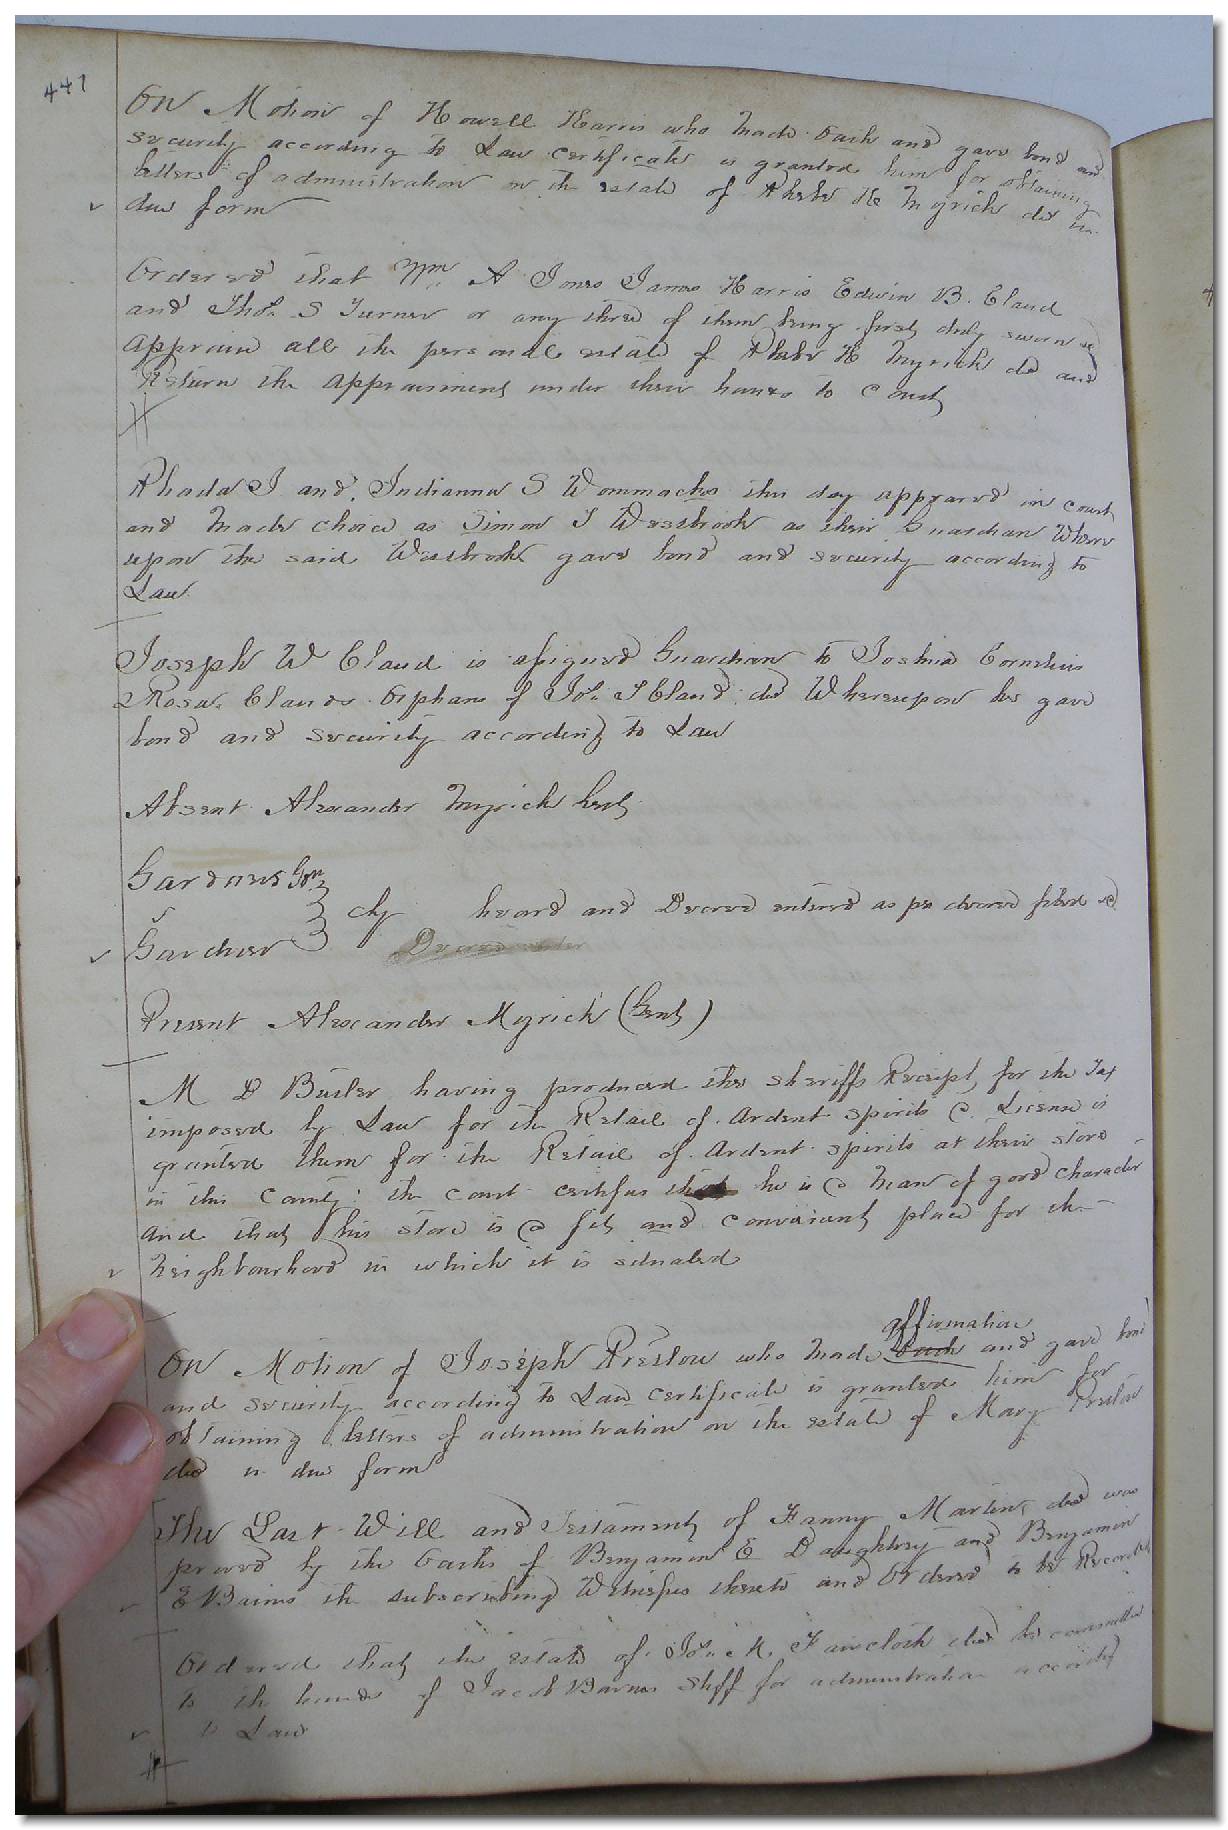 441
On Motion of Howell Harris who made Oath and gave bond and
security according to Law certificate is granted him for obtaining
letters of administration on the estate of Rhebe H Myrick decd in
due form
Ordered that Wm A Jones James Harris Edwin B. Claud
and Thos. S Turner or any three of them being first duly sworn do
appraise all the personal estate of Rhebe H Myrick decd and
Return the appraisment under their hands to Court
Rhoda J and Indianna S Wommacks this day appeared in court
and made choice as Simon T Westbrook as their Guardian Where
upon the said Westbrook gave bond and security according to
Law
Joseph W Claud is assigned Guardian to Joshua Cornelius
Rosa Clauds Orphans of Jos. J Claud decd Whereupon he gave
bond and security according to Law
Absent Alexander Myrick Gent
Gardners Gdn
v
chy heard and Decree entered as per decree filed
Gardner
Present Alexander Myrick (Gent)
M D Butler having produced the sheriffs Receipt for the Tax
imposed by Law for the Retail of Ardent spirits a License is
granted them for the Retail of Ardent spirits at their store
in this County: the court certifies that he is a Man of good character
and that his store is a fit and convenient place for the
neighbourhood in which it is situated
affirmation
On Motion of Joseph Preslow who made Oath and gave bond
and security according to Law certificate is granted him for
obtaining letters of administration on the estate of Mary Preslow
decd in due form
The Last Will and Testament of Fanny Martin decd was
proved by the Oaths of Benjamin E Daughtrey and Benjamin
E Bains the subscribing Witnesses thereto and Ordered to be Recorded
Ordered that the estate of Jos. M. Faircloth decd be committed
to the hands of Jacob Barnes Shff for administration according
to Law